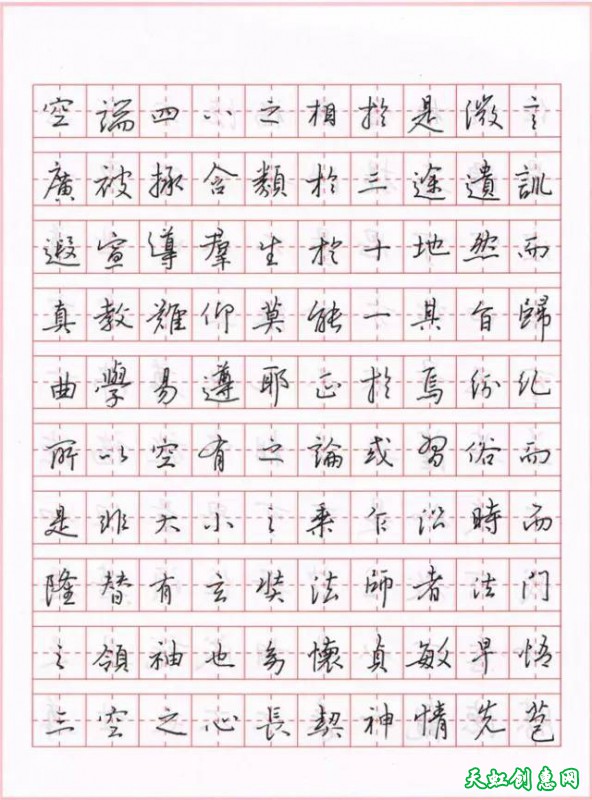 空端四八之相於是微言
廣被拯含類於三途遺訓
遐宣導羣生於十地然而
真教難仰莫能一其旨歸
曲學易遵耶正於焉紛糺
所以空有之論或習俗而
是非大小之乘乍沿時而
隆替有玄奘法師者法門
之領袖也幼懷貞敏早悟
三空之心長契神情先苞
天虹创意网